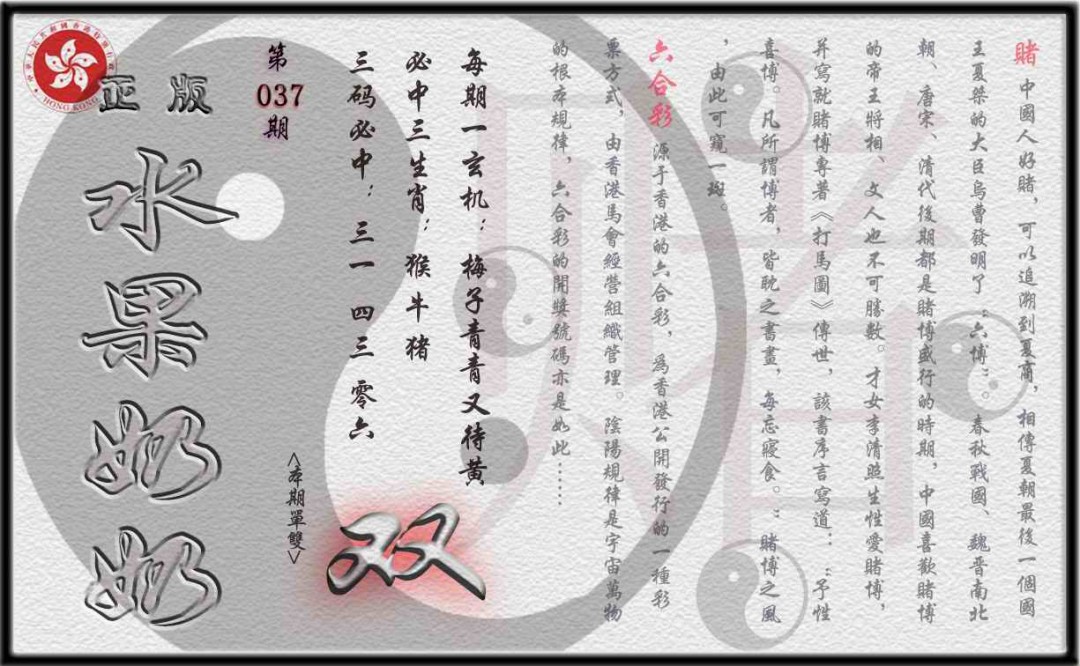 賭 中國人好賭，可以追溯到夏商，相傳夏朝最後一個國
王夏桀的大臣烏曹發明了“六博”。春秋戰國、魏晉南北
朝、唐宋、清代後期都是賭博盛行的時期，中國喜歡賭博
的帝王將相、文人也不可勝數。才女李清照生性愛賭博，
并寫就賭博專著《打馬圖》傳世，該書序言寫道：“予性
喜博。凡所謂博者，皆耽之書畫，每忘寢食。”賭博之風
，由此可窺一斑。
六合彩 源于香港的六合彩，為香港公開發行的一種彩
票方式，由香港馬會經營組織管理。陰陽規律是宇宙萬物
的根本規律，六合彩的開獎號碼亦是如此……
每期一玄机：梅子青青又待黄
必中三生肖：猴牛猪
三码必中：三一 四三 零六
<本期單雙>
双
第037期
正版
水果奶奶
HONG KONG